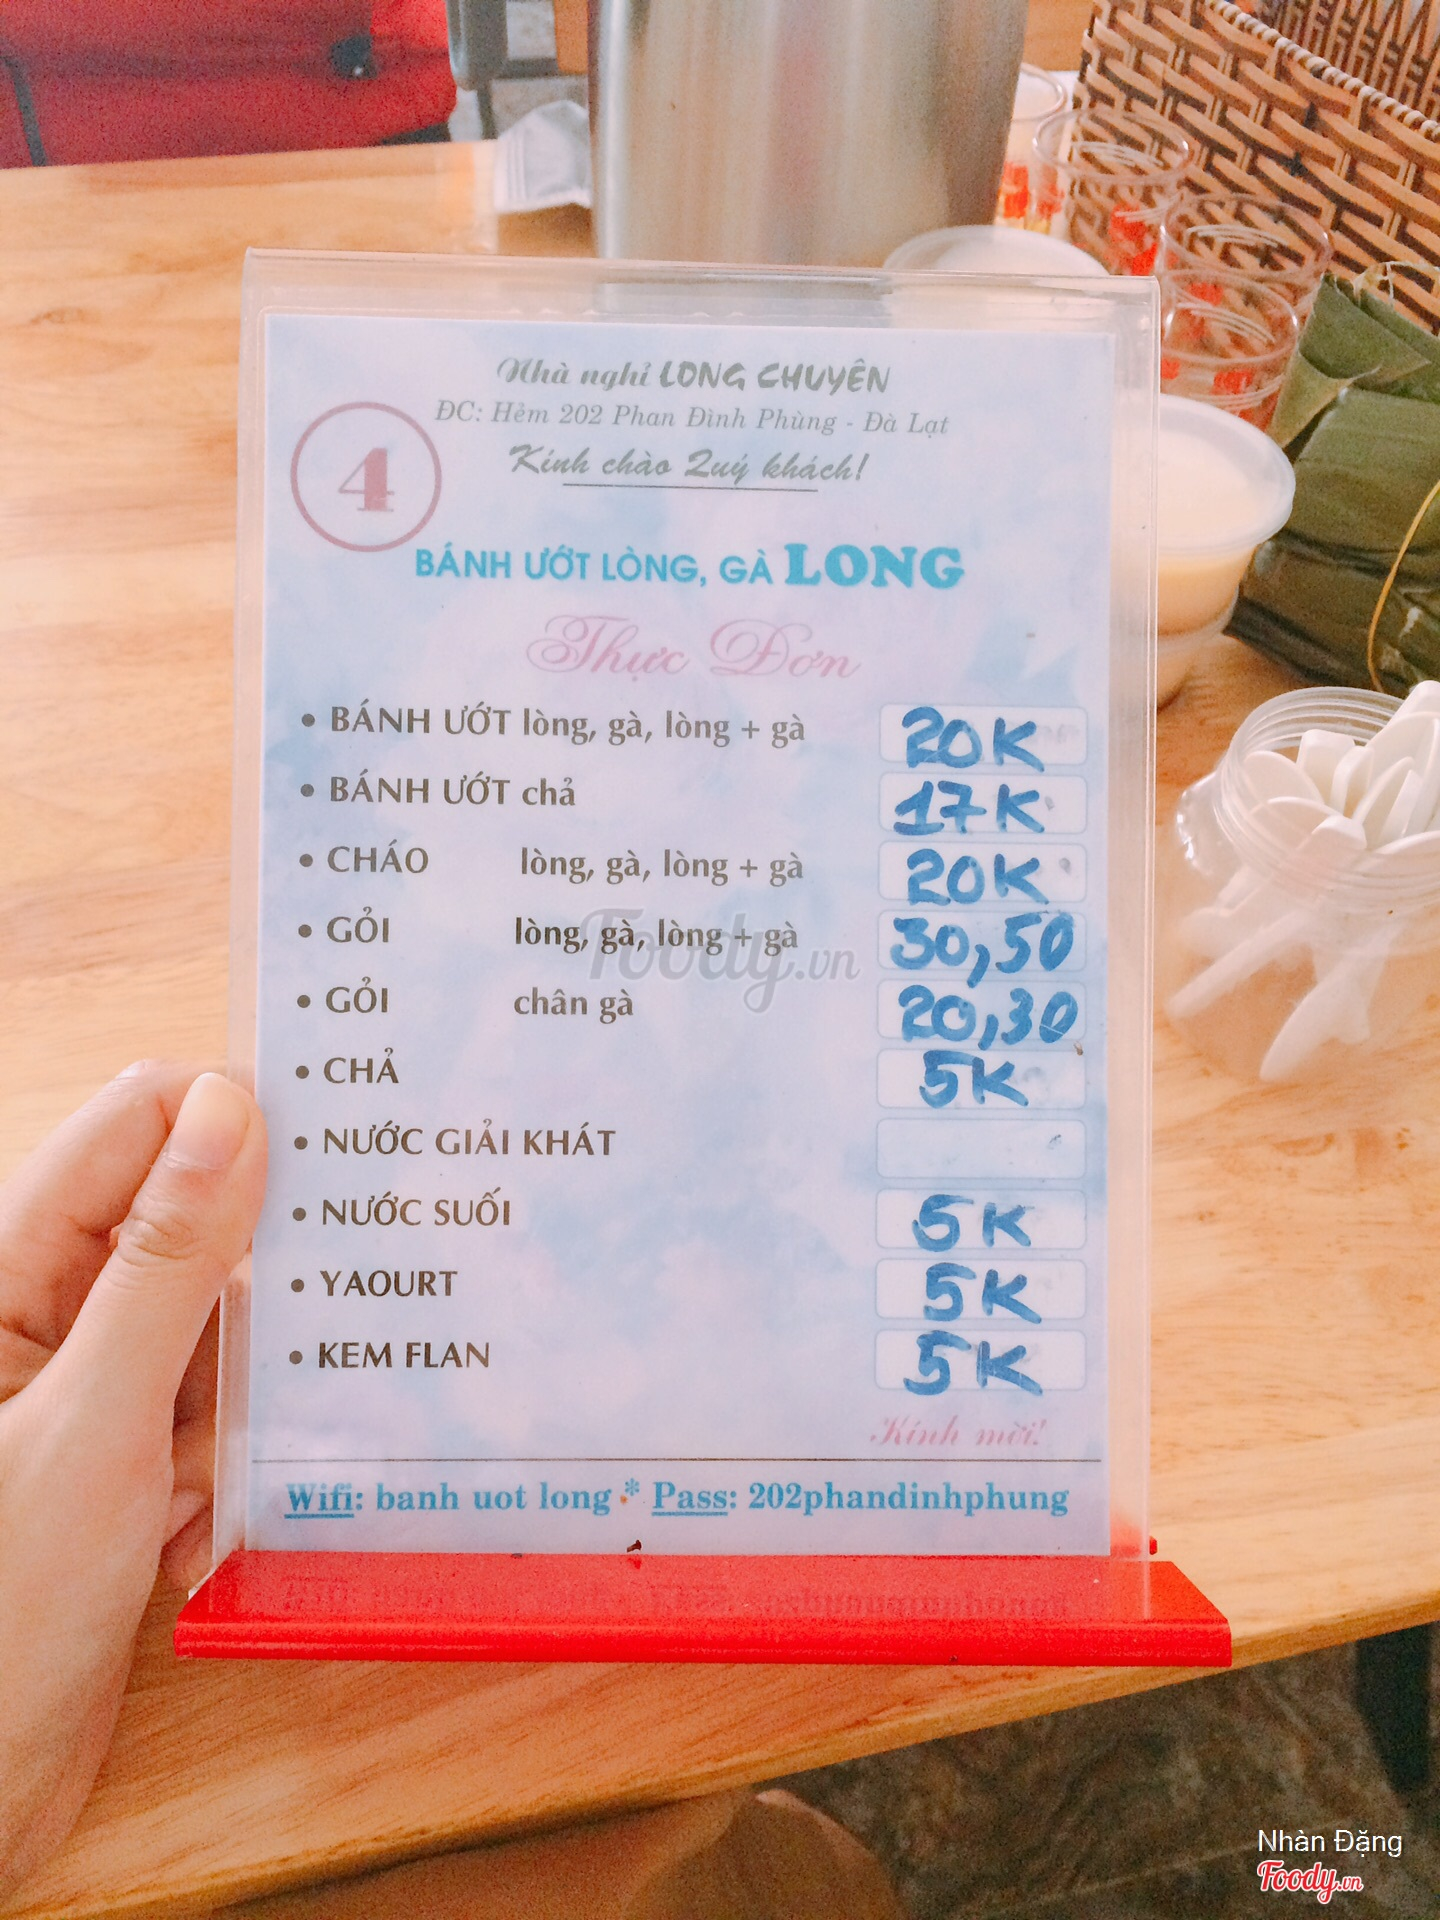 Nhà nghỉ LONG CHUYÊN
ĐC: Hẻm 202 Phan Đình Phùng - Đà Lạt
Kính chào Quý khách!
4
BÁNH ƯỚT LÒNG, GÀ LONG
Thực Đơn
• BÁNH ƯỚT lòng, gà, lòng + gà 20K
• BÁNH ƯỚT chả 17K
• CHÁO lòng, gà, lòng + gà 20K
• GỎI lòng, gà, lòng + gà 30,50
• GỎI chân gà 20,30
• CHẢ 5K
• NƯỚC GIẢI KHÁT
• NƯỚC SUỐI 5K
• YAOURT 5K
• KEM FLAN 5K
Kính mời!
Wifi: banh uot long * Pass: 202phandinhphung
Foody.vn
Nhàn Đặng
Foody.vn